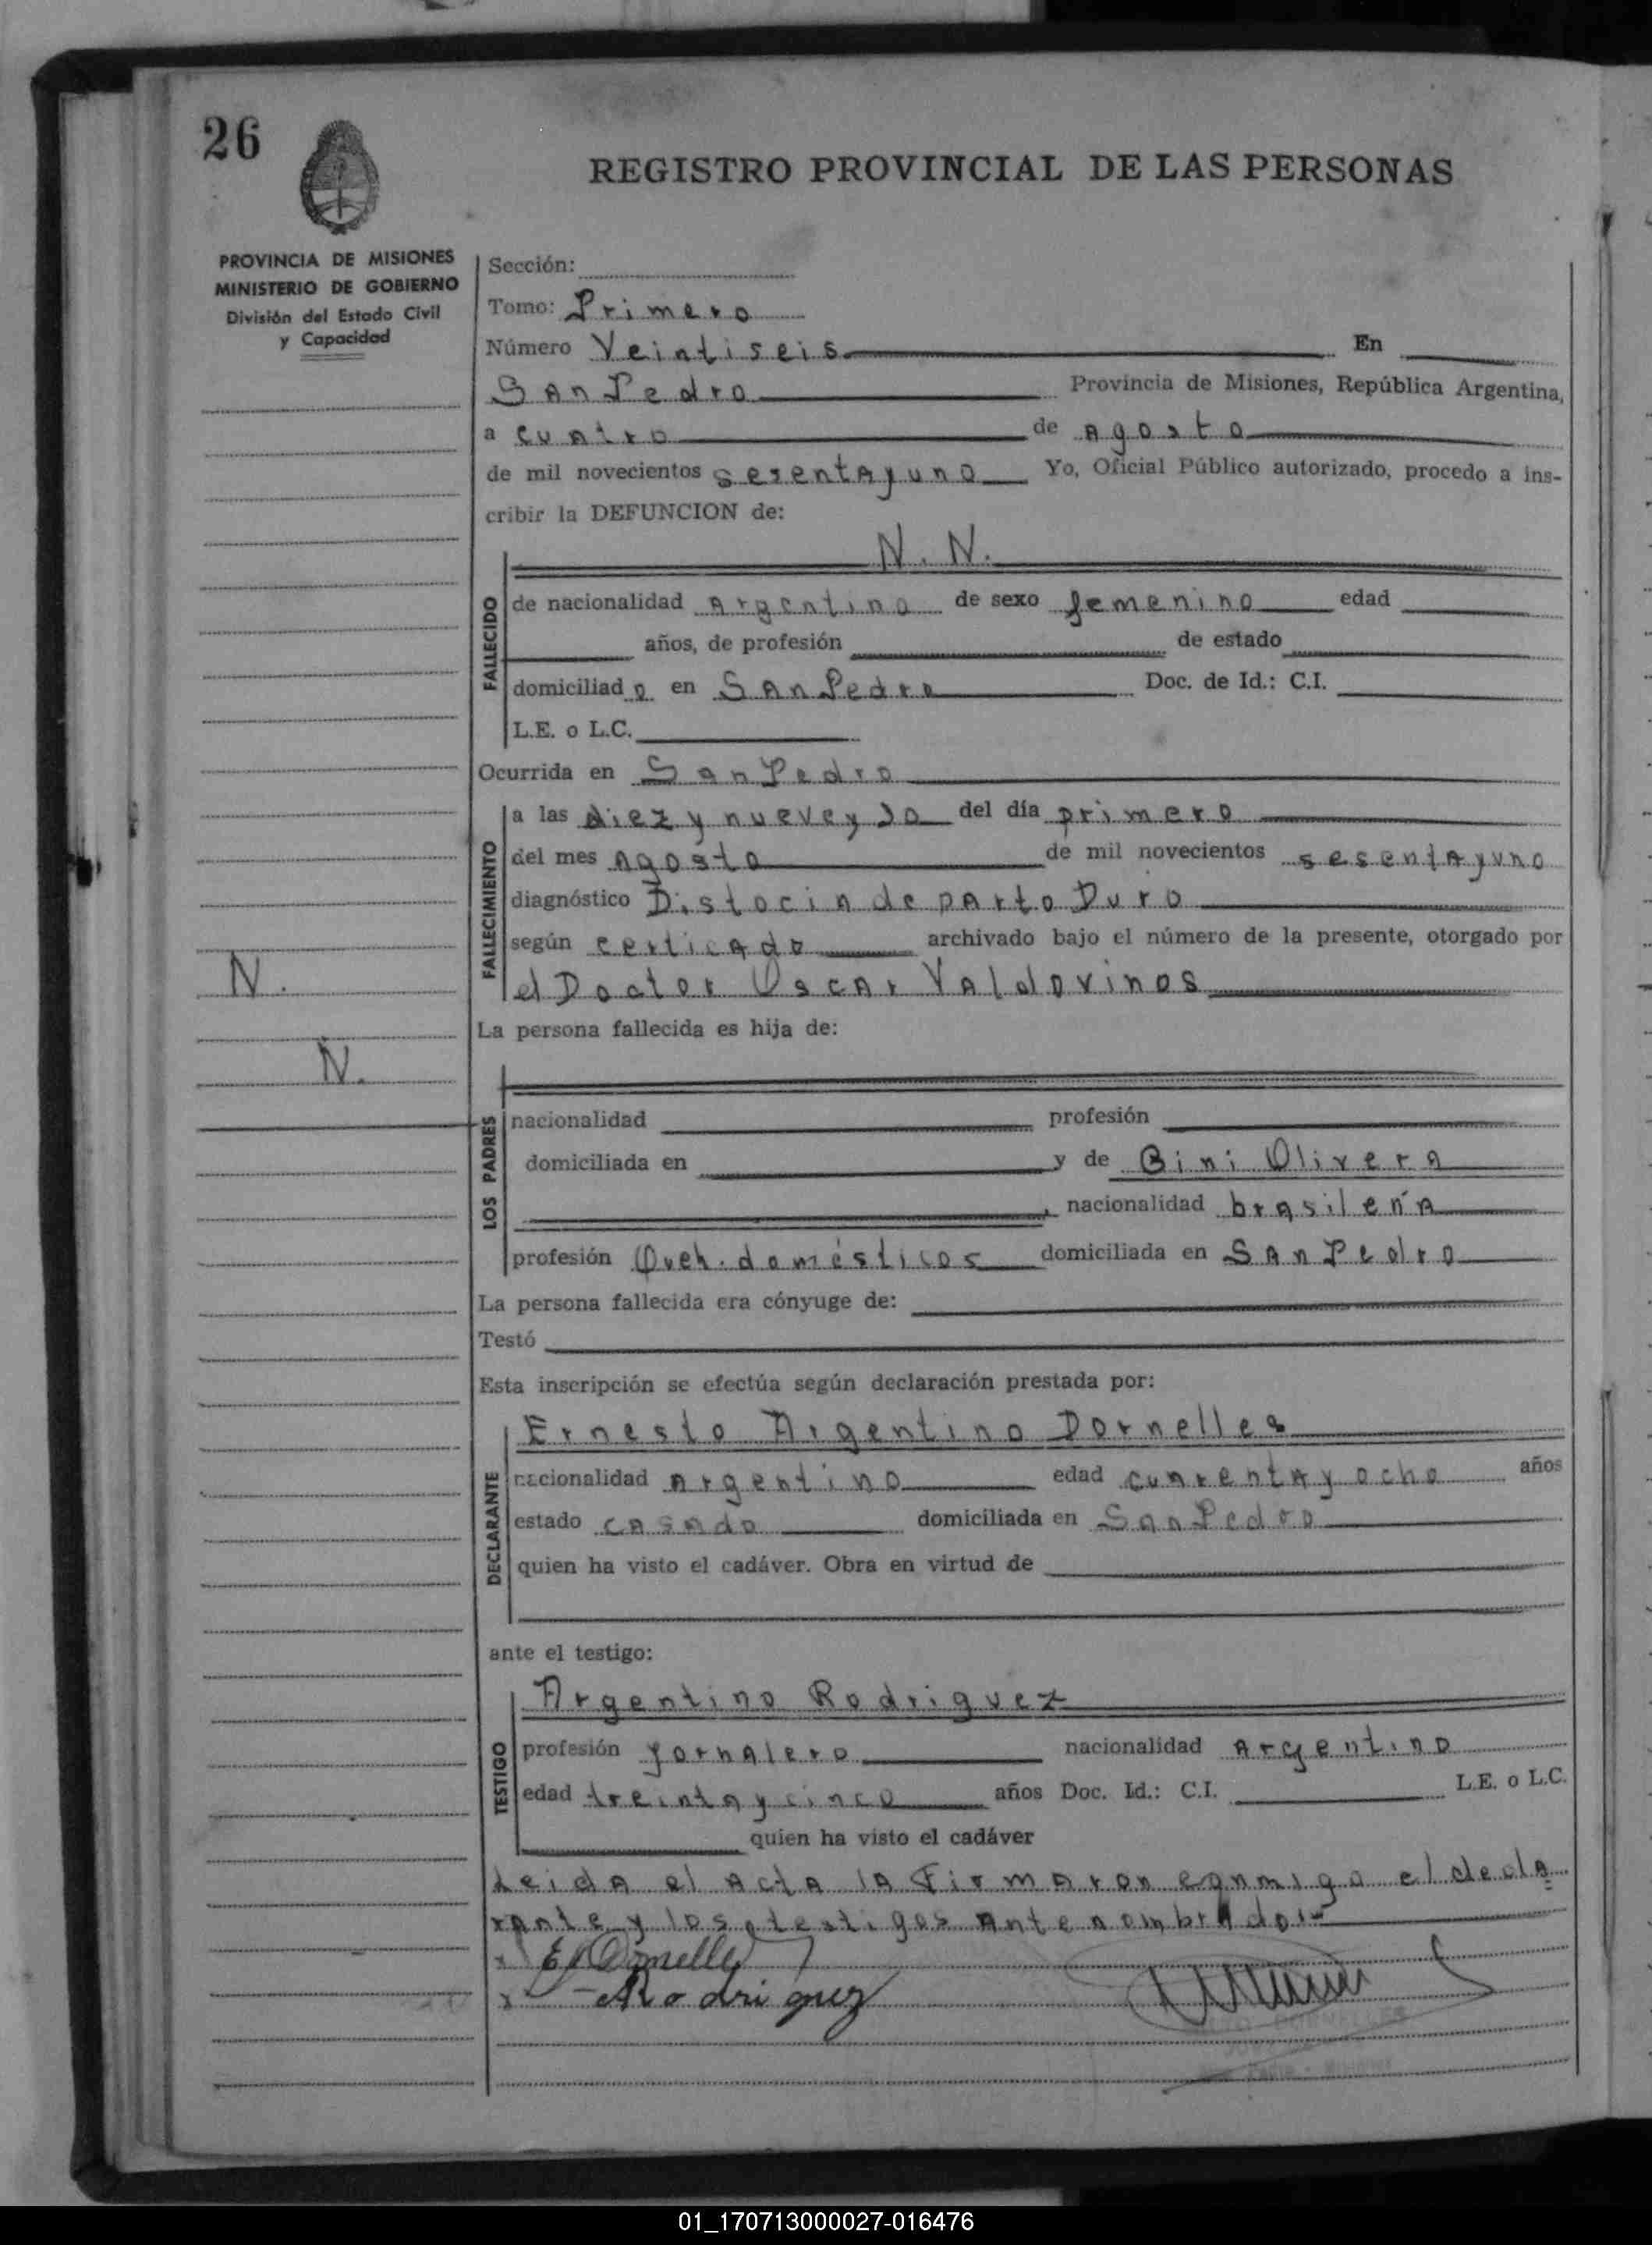 26
REGISTRO PROVINCIAL DE LAS PERSONAS
PROVINCIA DE MISIONES
MINISTERIO DE GOBIERNO
División del Estado Civil
y Capacidad
Sección:
Tomo: Primero
Número Veintiseis En
San Pedro Provincia de Misiones, República Argentina,
a cuatro de agosto
de mil novecientos sesenta y uno Yo, Oficial Público autorizado, procedo a ins-
cribir la DEFUNCION de:
N. N.
FALLECIDO
de nacionalidad Argentina de sexo femenino edad
años, de profesión de estado
domiciliad o en San Pedro Doc. de Id.: C.I.
L.E. o L.C.
Ocurrida en San Pedro
FALLECIMIENTO
a las diez y nueve y 30 del día primero
del mes Agosto de mil novecientos sesenta y uno
diagnóstico Distocia de parto Duro
según certicado archivado bajo el número de la presente, otorgado por
el Doctor Oscar Valdovinos
N.
N.
La persona fallecida es hija de:
LOS PADRES
nacionalidad profesión
domiciliada en y de Bini Olivera
, nacionalidad brasileña
profesión Queh. domésticos domiciliada en San Pedro
La persona fallecida era cónyuge de:
Testó
Esta inscripción se efectúa según declaración prestada por:
DECLARANTE
Ernesto Argentino Dornelles
nacionalidad Argentino edad cuarenta y ocho años
estado casado domiciliada en San Pedro
quien ha visto el cadáver. Obra en virtud de
ante el testigo:
TESTIGO
Argentino Rodriguez
profesión jornalero nacionalidad Argentino
edad treinta y cinco años Doc. Id.: C.I. L.E. o L.C.
quien ha visto el cadáver
Leida el acta la Firmaron conmigo el decla
rante y los testigos antenombrados-
Dornelles
Rodriguez
DORNELLES
01_170713000027-016476